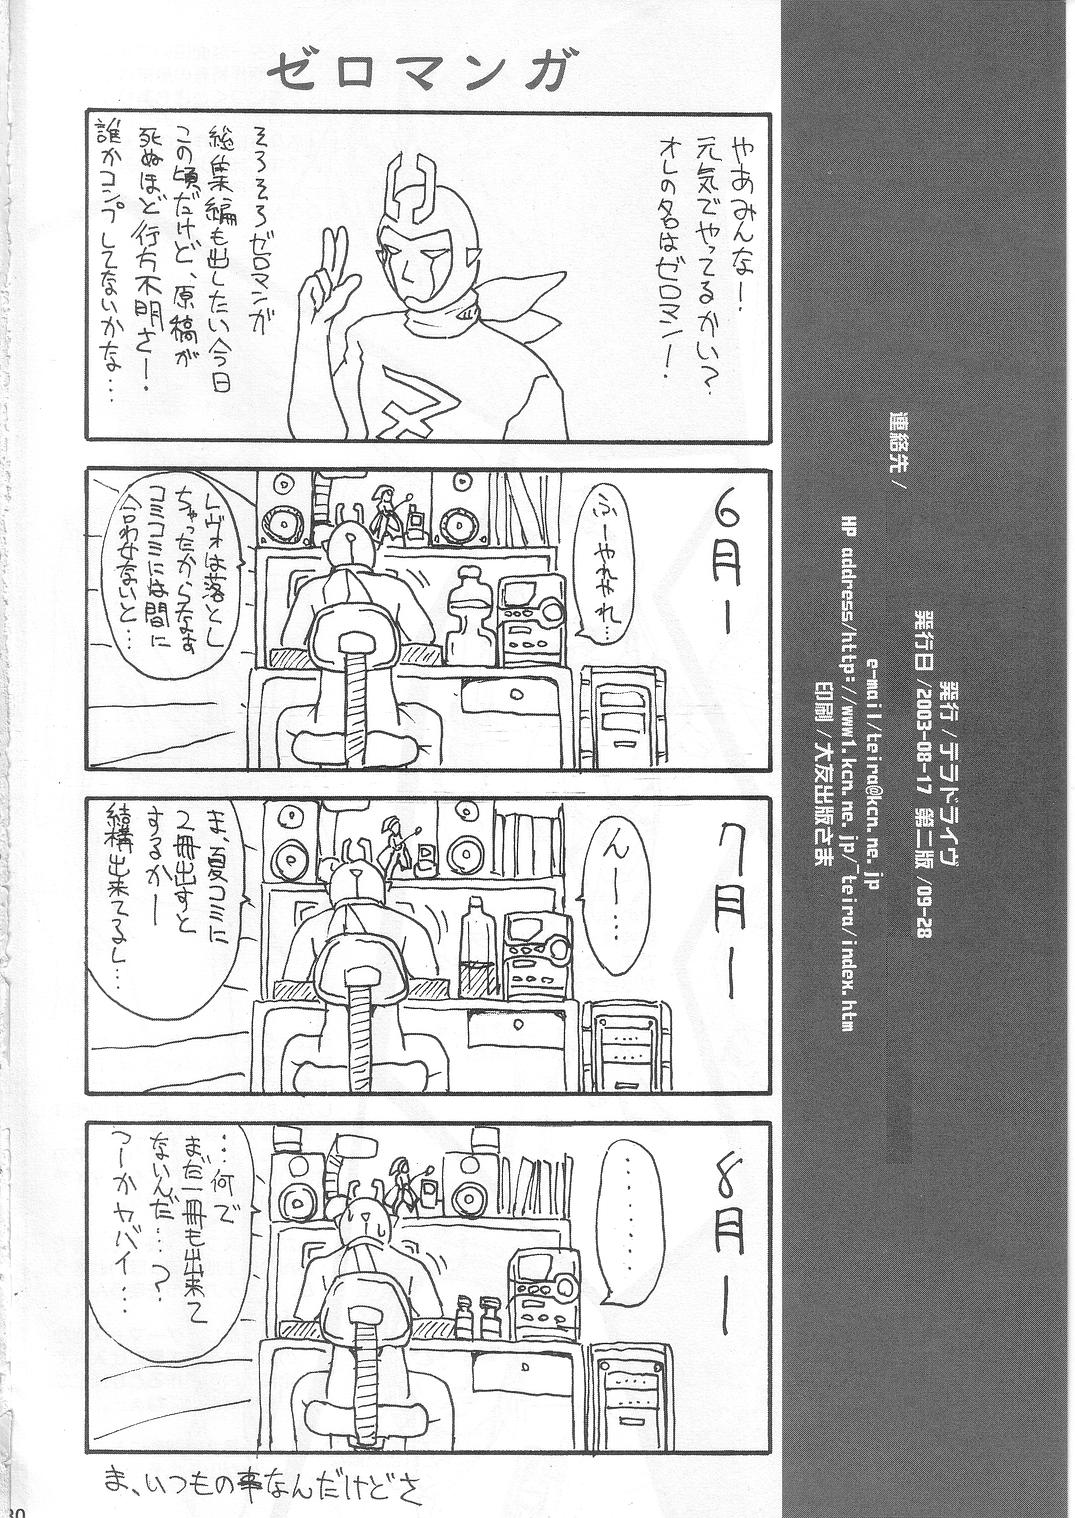 ゼロマンガ
やあみんな！
元気でやってるかい？
オレの名はゼロマン！
そろそろゼロマンガ
総集編も出したい今日
この頃だけど、原稿が
死ぬほど行方不明さ！
誰かコンプしてないかな…
6月ー
ふーやれやれ…
レヴォは落とし
ちゃったからなぁ
コミコミには間に
合わせないと…
7月ー
んー…
ま、夏コミに
2冊出すと
するかー
結構出来てるし…
8月ー
……
…何で
まだ一冊も出来て
ないんだ…？
つーかヤバイ…
ま、いつもの事なんだけどさ
発行/テラドライヴ
発行日/2003-08-17 第二版/09-28
連絡先/
e-mail/teira@kcn.ne.jp
HP address/http://www1.kcn.ne.jp/~teira/index.htm
印刷/大友出版さま
30